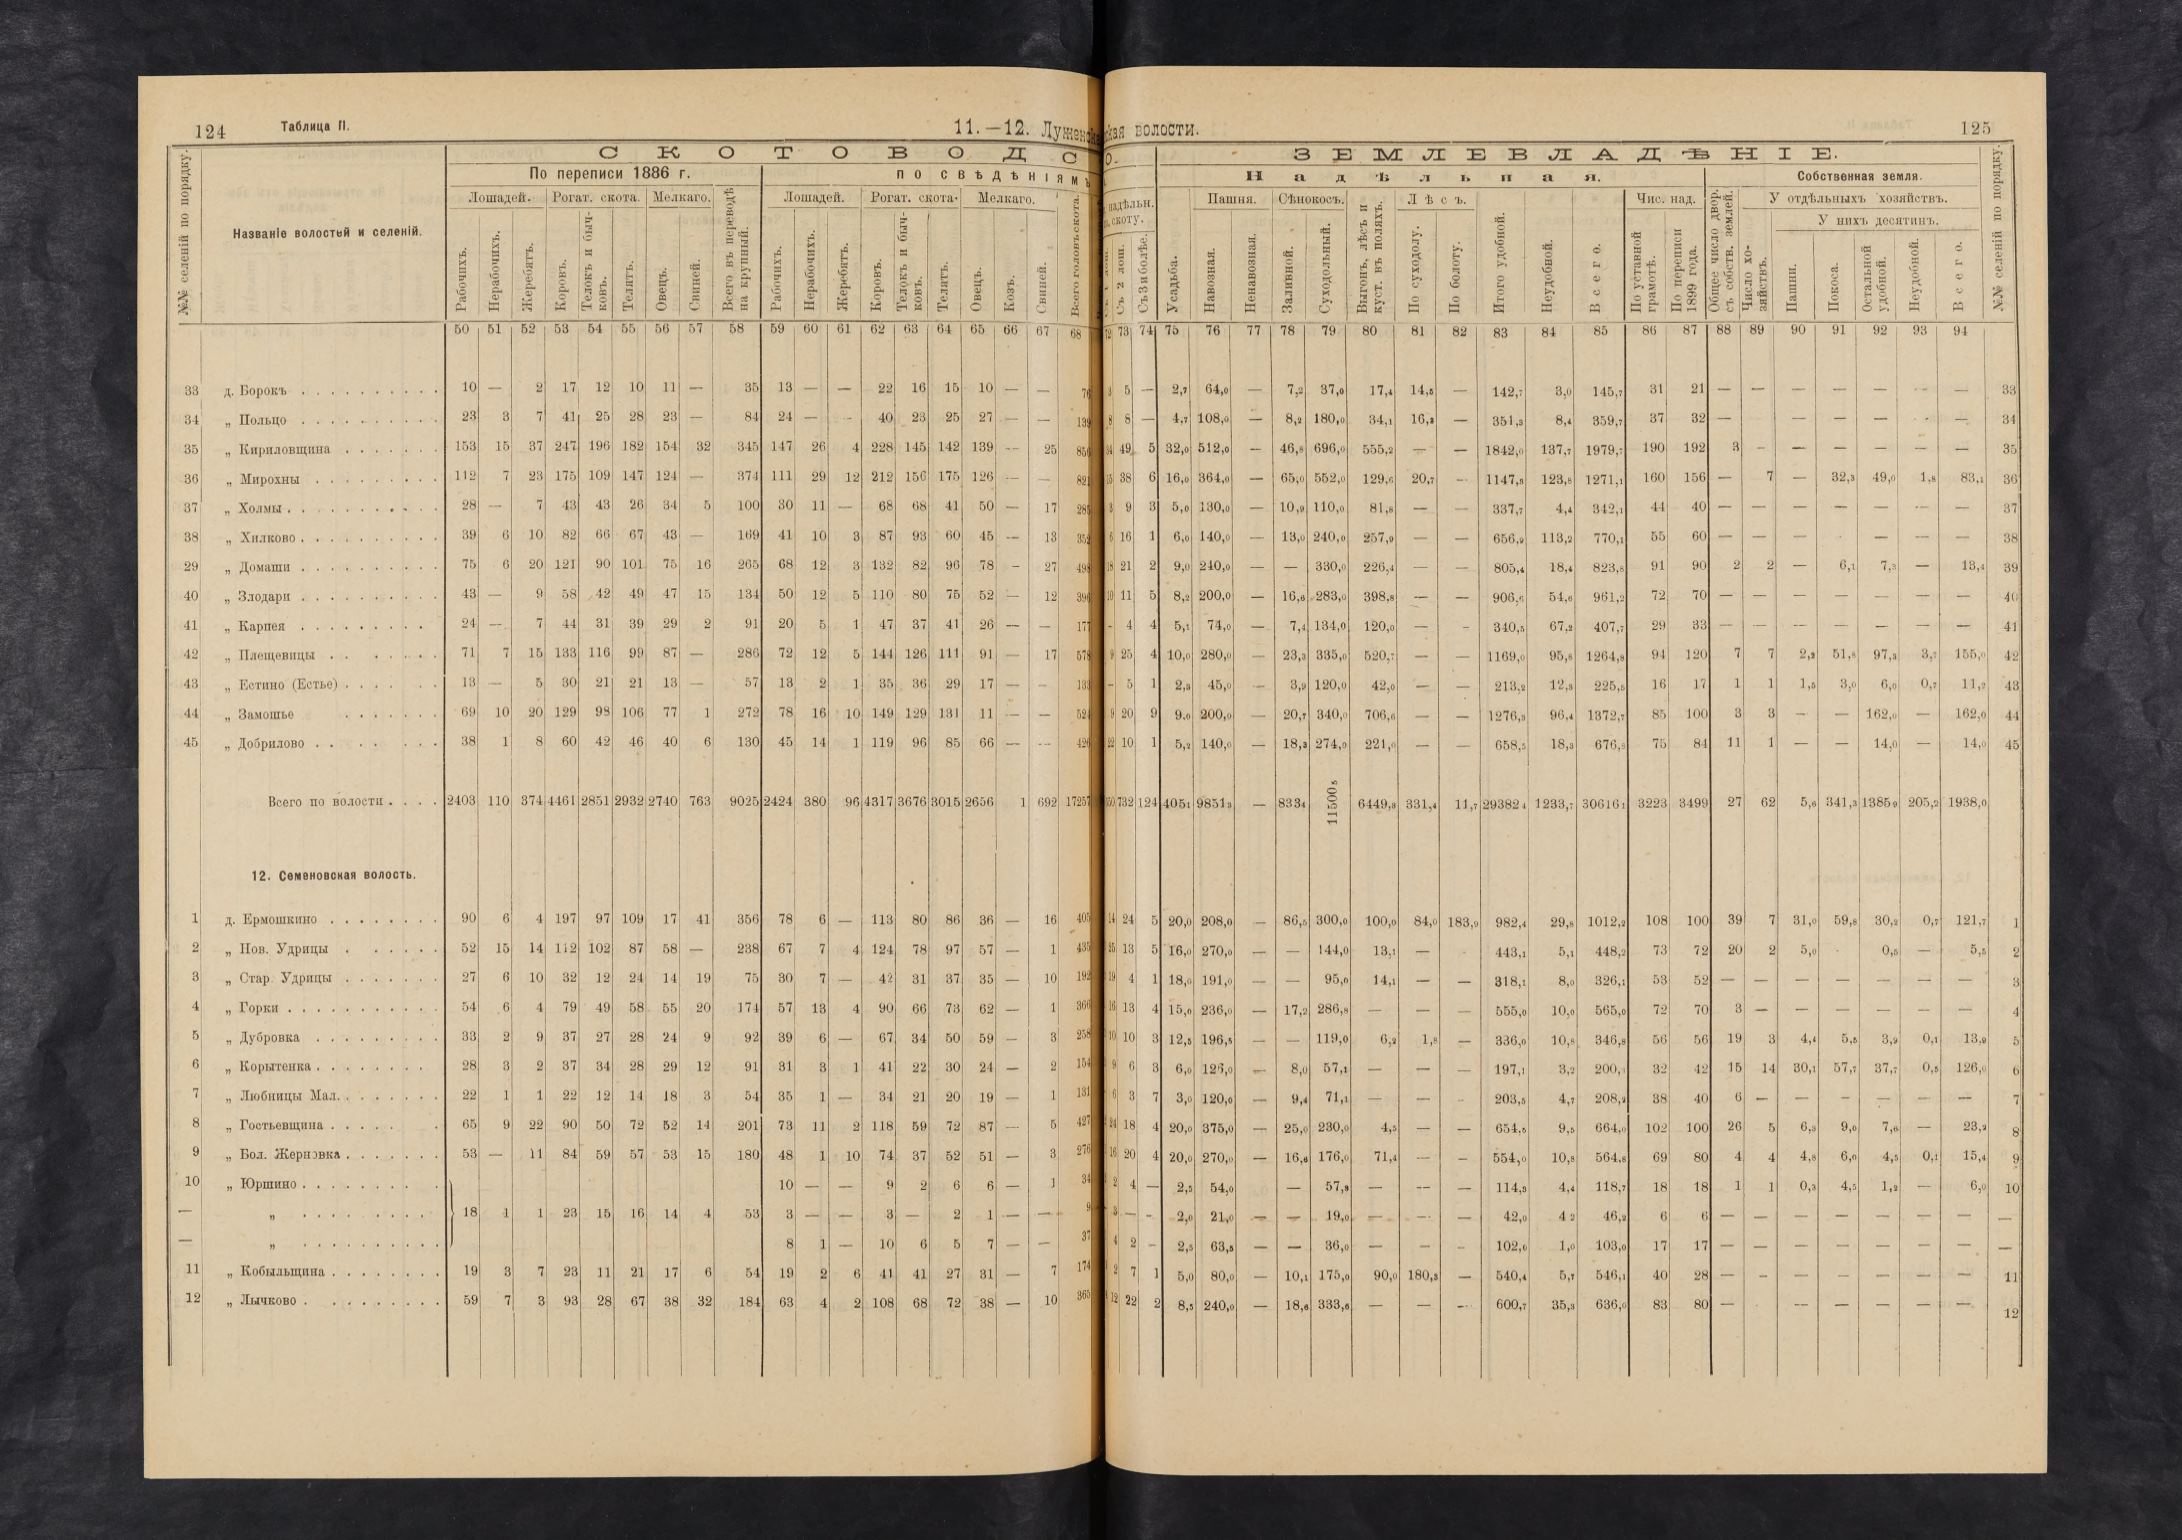 124 Таблица II. 11.—12. Луженс
СКОТОВОДС
По переписи 1886 г. по свѣдѣніямъ
Лошадей. Рогат. скота. Мелкаго. Лошадей. Рогат. скота. Мелкаго.
№№ селеній по порядку. Названіе волостей и селеній. Рабочихъ. Нерабочихъ. Жеребятъ. Коровъ. Телокъ и бычковъ. Телятъ. Овецъ. Свиней. Всего въ переводѣ на крупный. Рабочихъ. Нерабочихъ. Жеребятъ. Коровъ. Телокъ и бычковъ. Телятъ. Овецъ. Козъ. Свиней. Всего головъ скота.
50 51 52 53 54 55 56 57 58 59 60 61 62 63 64 65 66 67 68
33 д. Борокъ 10 — 2 17 12 10 11 — 35 13 — — 22 16 15 10 — — 76
34 „ Польцо 23 3 7 41 25 28 23 — 84 24 — - 40 23 25 27 — — 139
35 „ Кириловщина 153 15 37 247 196 182 154 32 345 147 26 4 228 145 142 139 — 25 856
36 „ Мирохны 112 7 23 175 109 147 124 — 374 111 29 12 212 156 175 126 — — 821
37 „ Холмы 28 — 7 43 43 26 34 5 100 30 11 — 68 68 41 50 — 17 285
38 „ Хилково 39 6 10 82 66 67 43 — 169 41 10 3 87 93 60 45 — 13 352
29 „ Домаши 75 6 20 121 90 101 75 16 265 68 12 3 132 82 96 78 - 27 498
40 „ Злодари 43 — 9 58 42 49 47 15 134 50 12 5 110 80 75 52 — 12 396
41 „ Карпея 24 — 7 44 31 39 29 2 91 20 5 1 47 37 41 26 — — 177
42 „ Плещевицы 71 7 15 133 116 99 87 — 286 72 12 5 144 126 111 91 — 17 578
43 „ Естино (Естье) 13 — 5 30 21 21 13 — 57 13 2 1 35 36 29 17 — - 133
44 „ Замошье 69 10 20 129 98 106 77 1 272 78 16 10 149 129 131 11 — — 524
45 „ Добрилово 38 1 8 60 42 46 40 6 130 45 14 1 119 96 85 66 — -- 426
Всего по волости 2403 110 374 4461 2851 2932 2740 763 9025 2424 380 96 4317 3676 3015 2656 1 692 17257
12. Семеновская волость.
1 д. Ермошкино 90 6 4 197 97 109 17 41 356 78 6 — 113 80 86 36 — 16 405
2 „ Нов. Удрицы 52 15 14 112 102 87 58 — 238 67 7 4 124 78 97 57 — 1 435
3 „ Стар. Удрицы 27 6 10 32 12 24 14 19 75 30 7 — 42 31 37 35 — 10 192
4 „ Горки 54 6 4 79 49 58 55 20 174 57 13 4 90 66 73 62 — 1 366
5 „ Дубровка 33 2 9 37 27 28 24 9 92 39 6 — 67 34 50 59 — 3 258
6 „ Корытенка 28 3 2 37 34 28 29 12 91 31 3 1 41 22 30 24 — 2 154
7 „ Любницы Мал. 22 1 1 22 12 14 18 3 54 35 1 — 34 21 20 19 — 1 131
8 „ Гостьевщина 65 9 22 90 50 72 52 14 201 73 11 2 118 59 72 87 — 5 427
9 „ Бол. Жерновка 53 — 11 84 59 57 53 15 180 48 1 10 74 37 52 51 — 3 276
10 „ Юршино 10 — — 9 2 6 6 — 1 34
— „ 18 1 1 23 15 16 14 4 53 3 — — 3 — 2 1 — — 9
— „ 8 1 — 10 6 5 7 — — 37
11 „ Кобыльщина 19 3 7 23 11 21 17 6 54 19 2 6 41 41 27 31 — 7 174
12 „ Лычково 59 7 3 93 28 67 38 32 184 63 4 2 108 68 72 38 — 10 365
ская волости. 125
О. ЗЕМЛЕВЛАДѢНІЕ.
Надѣльная. Собственная земля.
надѣльн. скоту. Пашня. Сѣнокосъ. Лѣсъ. Чис. над. У отдѣльныхъ хозяйствъ.
У нихъ десятинъ.
Съ 2 лош. Съ 3 и болѣе. Усадьба. Навозная. Ненавозная. Заливной. Суходольный. Выгонъ, лѣсъ и куст. въ поляхъ. По суходолу. По болоту. Итого удобной. Неудобной. Всего. По уставной грамотѣ. По переписи 1899 года. Общее число двор. съ собств. землей. Число хозяйствъ. Пашни. Покоса. Остальной удобной. Неудобной. Всего. №№ селеній по порядку.
72 73 74 75 76 77 78 79 80 81 82 83 84 85 86 87 88 89 90 91 92 93 94
3 5 — 2,7 64,0 — 7,2 37,0 17,4 14,5 — 142,7 3,0 145,7 31 21 — — — — — — — 33
8 8 — 4,7 108,0 — 8,2 180,0 34,1 16,3 — 351,3 8,4 359,7 37 32 — — — — — — — 34
34 49 5 32,0 512,0 — 46,8 696,0 555,2 — — 1842,0 137,7 1979,7 190 192 3 - — — — — — 35
15 38 6 16,0 364,0 — 65,0 552,0 129,6 20,7 - 1147,3 123,8 1271,1 160 156 — 7 — 32,3 49,0 1,8 83,1 36
3 9 3 5,0 130,0 — 10,9 110,0 81,8 — — 337,7 4,4 342,1 44 40 — — — — — - — 37
6 16 1 6,0 140,0 — 13,0 240,0 257,9 — — 656,9 113,2 770,1 55 60 — — — — — — — 38
18 21 2 9,0 240,0 — — 330,0 226,4 — — 805,4 18,4 823,8 91 90 2 2 — 6,1 7,3 — 13,4 39
10 11 5 8,2 200,0 — 16,6 283,0 398,8 — — 906,6 54,6 961,2 72 70 — — — — — — — 40
- 4 4 5,1 74,0 — 7,4 134,0 120,0 — - 340,5 67,2 407,7 29 33 — — — — — — — 41
9 25 4 10,0 280,0 — 23,3 335,0 520,7 — — 1169,0 95,8 1264,8 94 120 7 7 2,2 51,8 97,3 3,7 155,0 42
- 5 1 2,3 45,0 — 3,9 120,0 42,0 — — 213,2 12,3 225,5 16 17 1 1 1,5 3,0 6,0 0,7 11,2 43
9 20 9 9,0 200,0 — 20,7 340,0 706,6 — — 1276,3 96,4 1372,7 85 100 3 3 — — 162,0 — 162,0 44
22 10 1 5,2 140,0 — 18,3 274,0 221,0 — — 658,5 18,3 676,8 75 84 11 1 — — 14,0 — 14,0 45
732 124 4051 98513 — 8334 11500,5 6449,8 331,4 11,7 29382,4 1233,7 30616,1 3223 3499 27 62 5,6 341,3 1385,9 205,2 1938,0
14 24 5 20,0 208,0 — 86,5 300,0 100,0 84,0 183,9 982,4 29,8 1012,2 108 100 39 7 31,0 59,8 30,2 0,7 121,7 1
25 13 5 16,0 270,0 — — 144,0 13,1 — - 443,1 5,1 448,2 73 72 20 2 5,0 0,5 — 5,5 2
19 4 1 18,0 191,0 — — 95,0 14,1 — — 318,1 8,0 326,1 53 52 — — — — — — — 3
16 13 4 15,0 236,0 — 17,2 286,8 — — — 555,0 10,0 565,0 72 70 3 — — — — — — 4
10 10 3 12,5 196,5 — — 119,0 6,2 1,8 — 336,0 10,8 346,8 56 56 19 3 4,4 5,5 3,9 0,1 13,9 5
9 6 3 6,0 126,0 — 8,0 57,1 — — — 197,1 3,2 200,3 32 42 15 14 30,1 57,7 37,7 0,5 126,0 6
6 3 7 3,0 120,0 — 9,4 71,1 — — - 203,5 4,7 208,2 38 40 6 — — — — — — 7
24 18 4 20,0 375,0 — 25,0 230,0 4,5 — — 654,5 9,5 664,0 102 100 26 5 6,3 9,0 7,6 — 23,2 8
16 20 4 20,0 270,0 — 16,6 176,0 71,4 — — 554,0 10,8 564,8 69 80 4 4 4,8 6,0 4,5 0,1 15,4 9
2 4 — 2,5 54,0 — 57,8 — — — 114,3 4,4 118,7 18 18 1 1 0,3 4,5 1,2 — 6,0 10
3 — - 2,0 21,0 — — 19,0 — — — 42,0 4 2 46,2 6 6 — — — — — — — —
4 2 - 2,5 63,5 — — 36,0 — — - 102,0 1,0 103,0 17 17 — — — — — — — —
2 7 1 5,0 80,0 — 10,1 175,0 90,0 180,3 — 540,4 5,7 546,1 40 28 — - — — — — — 11
12 22 2 8,5 240,0 — 18,6 333,6 — — — 600,7 35,3 636,0 83 80 — — — — — — 12